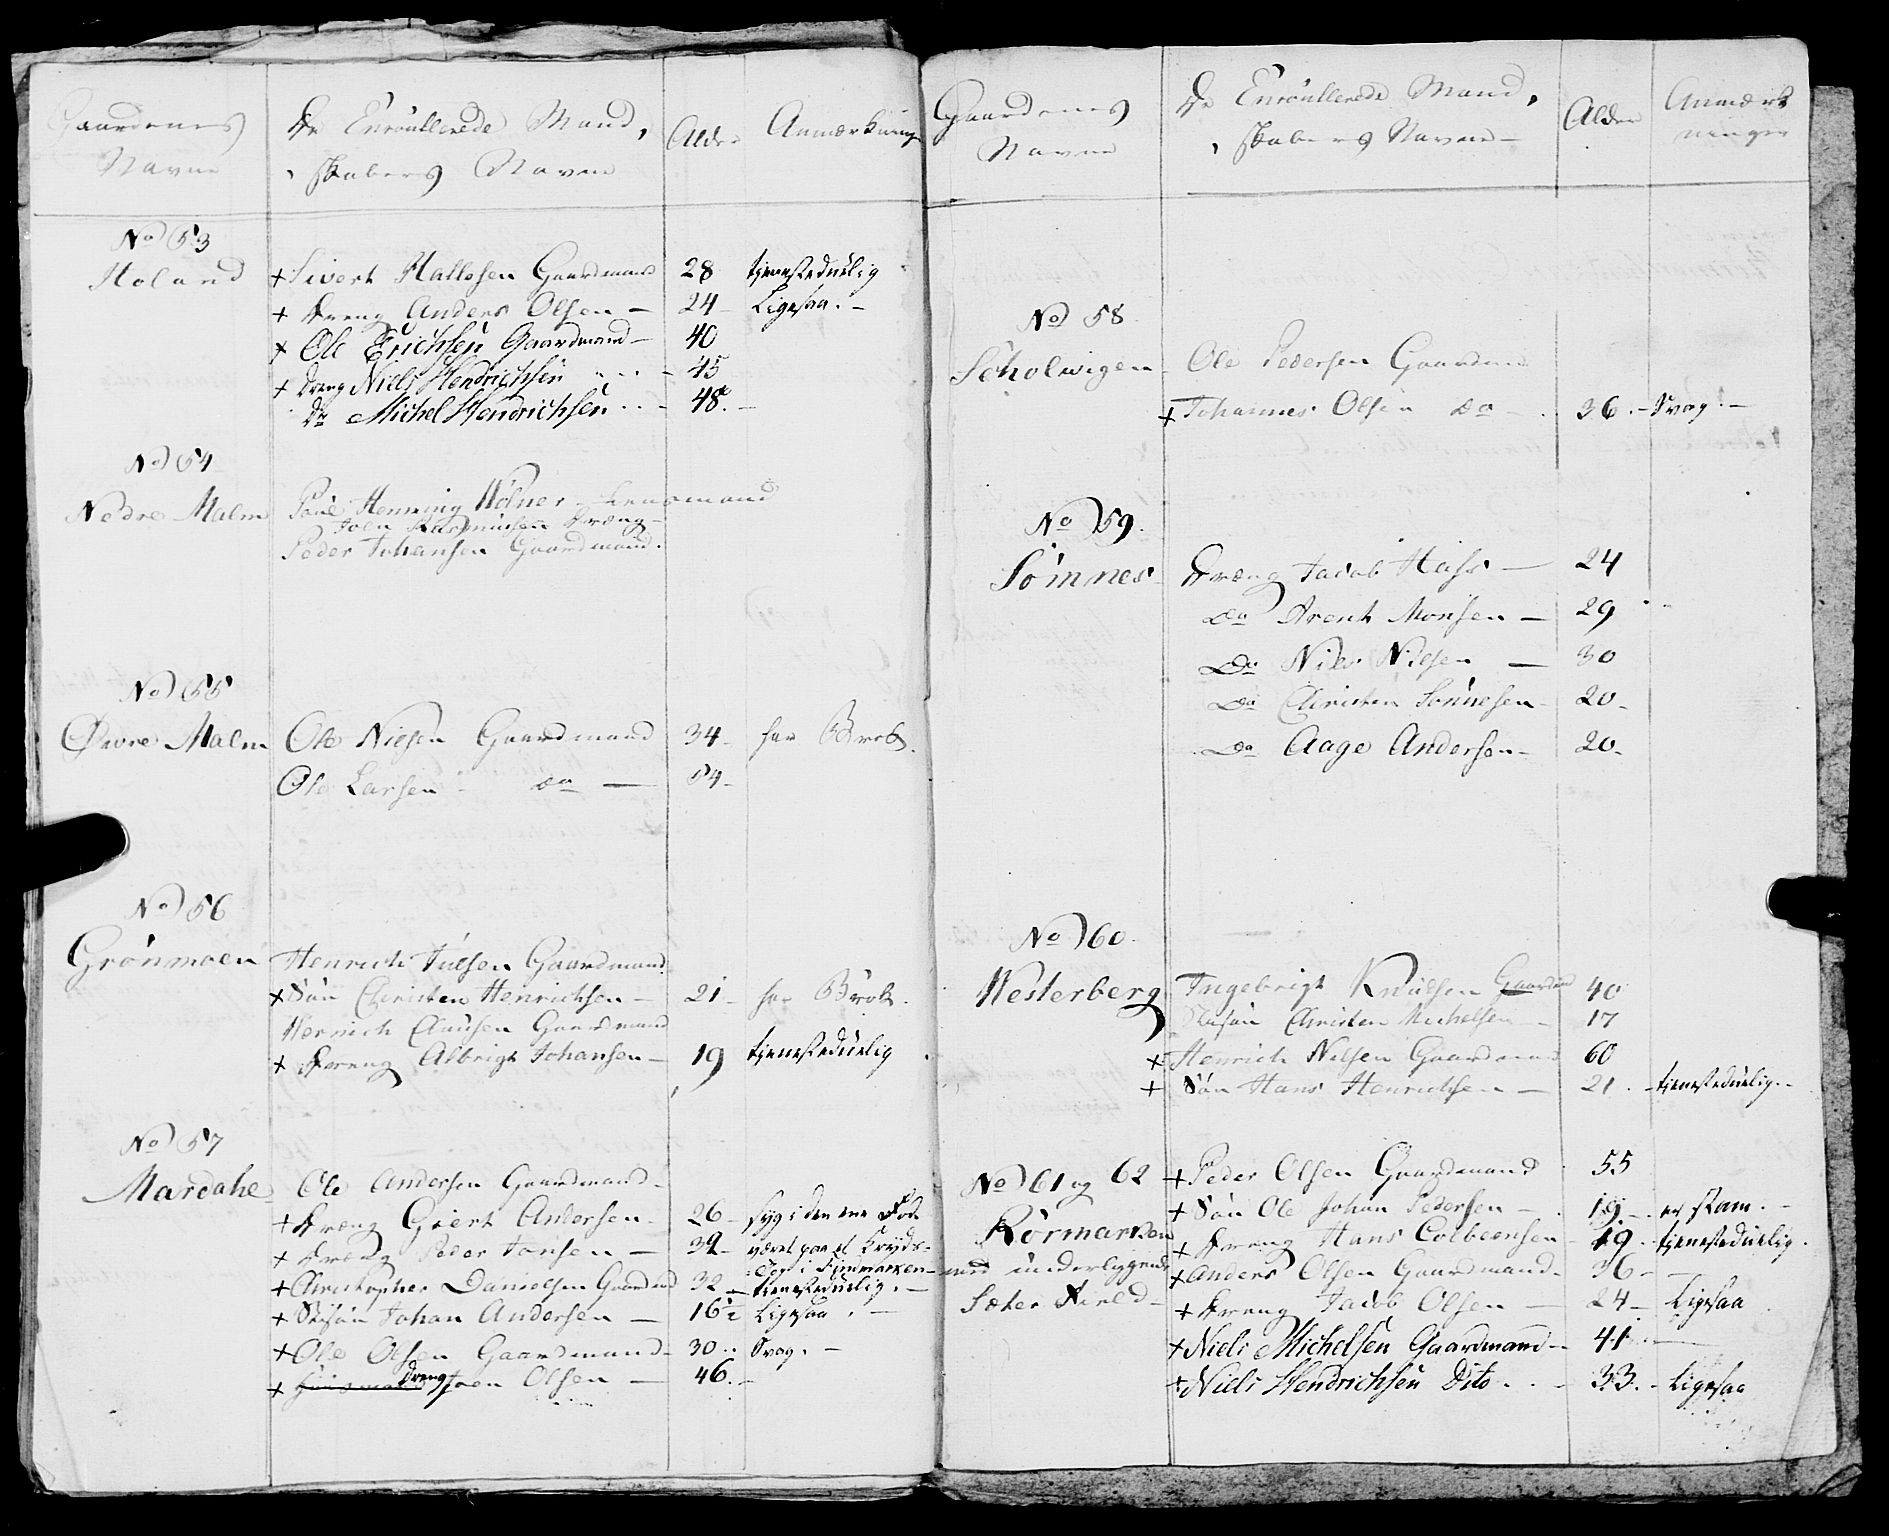 Gaardenes Navne | De Enroullerede Mand- | Alder | Anmærkninger
skabers Navne
No 53
Holand
+ Sivert Hallesen Gaardmand 28 tjenesteduelig
+ Dreng Anders Olsen — 24 — Ligesaa. —
+ Ole Erichsen Gaardmand — 40
+ Dreng Niels Hendrichsen - - - 45
Do Michel Hendrichsen - - - 48. —
No 54
Nedre Malm
Poul Henning Wolner — Lensmand
Joen Rasmusen Dræng —
Peder Johansen Gaardmand.
No 55
Øuvre Malm
Ole Nielsen Gaardmand 34 — har Brok.
Ole Larsen — do — 54 —
No 56
Grønmoen
Henrich Juelsen Gaardmand
+ Søn Christen Henrichsen — 21 — har Brok.
Henrich Clausen Gaardmand
+ Dreng Albrigt Johansen — 19 tjenesteduelig
No 57
Mardahl
Ole Andersen Gaardmand —
+ Dræng Giert Andersen — 26 — syg i den ene Fod
+ Dræng Peder Jonsen — 32 — været paa et Kryds-
Tog i Finmarken —
+ Christopher Danielsen Gaardmd 32 — tjenesteduelig. —
+ Stifsøn Johan Andersen — 16½ Ligesaa. —
+ Ole Olsen Gaardmand — 30.. Svag. —
+ Huusmand Dreng Joen Olsen — 46. —
Gaardenes Navne | De Enroullerede Mand- | Alder | Anmærkninger
skabers Navne —
No 58
Scholwigen —
Ole Pedersen Gaardmand
+ Johannes Olsen do — 36. — Svag. —
No 59.
Sömnes —
Dræng Jacob Hass — 24
do Arent Monsen — 29
Do Niels Nielsen — 30
Do Christen Sönnesen — 20 —
Do Aage Andersen — 20 —
No 60.
Westerberg
Ingebrigt Knudsen Gaardmd 40
Stifsøn Christen Michelsen — 17
+ Henrich Nilsen Gaardmand 60
+ Søn Hans Henrichsen — 21. — tjenesteduelig. —
No 61 og 62
Rörmarken
med underliggende
Sæter
+ Peder Olsen Gaardmand 55
+ Søn Ole Johan Pedersen — 19 — er stam. —
+ Dreng Hans Colbeensen — 19 — tjenesteduelig.
+ Anders Olsen Gaardmand — 36 —
+ Dreng Jacob Olsen — 24 — Ligesaa
+ Niels Michelsen Gaardmand — 41 —
+ Niels Hendrichsen Dito - - - 33. — Ligesaa